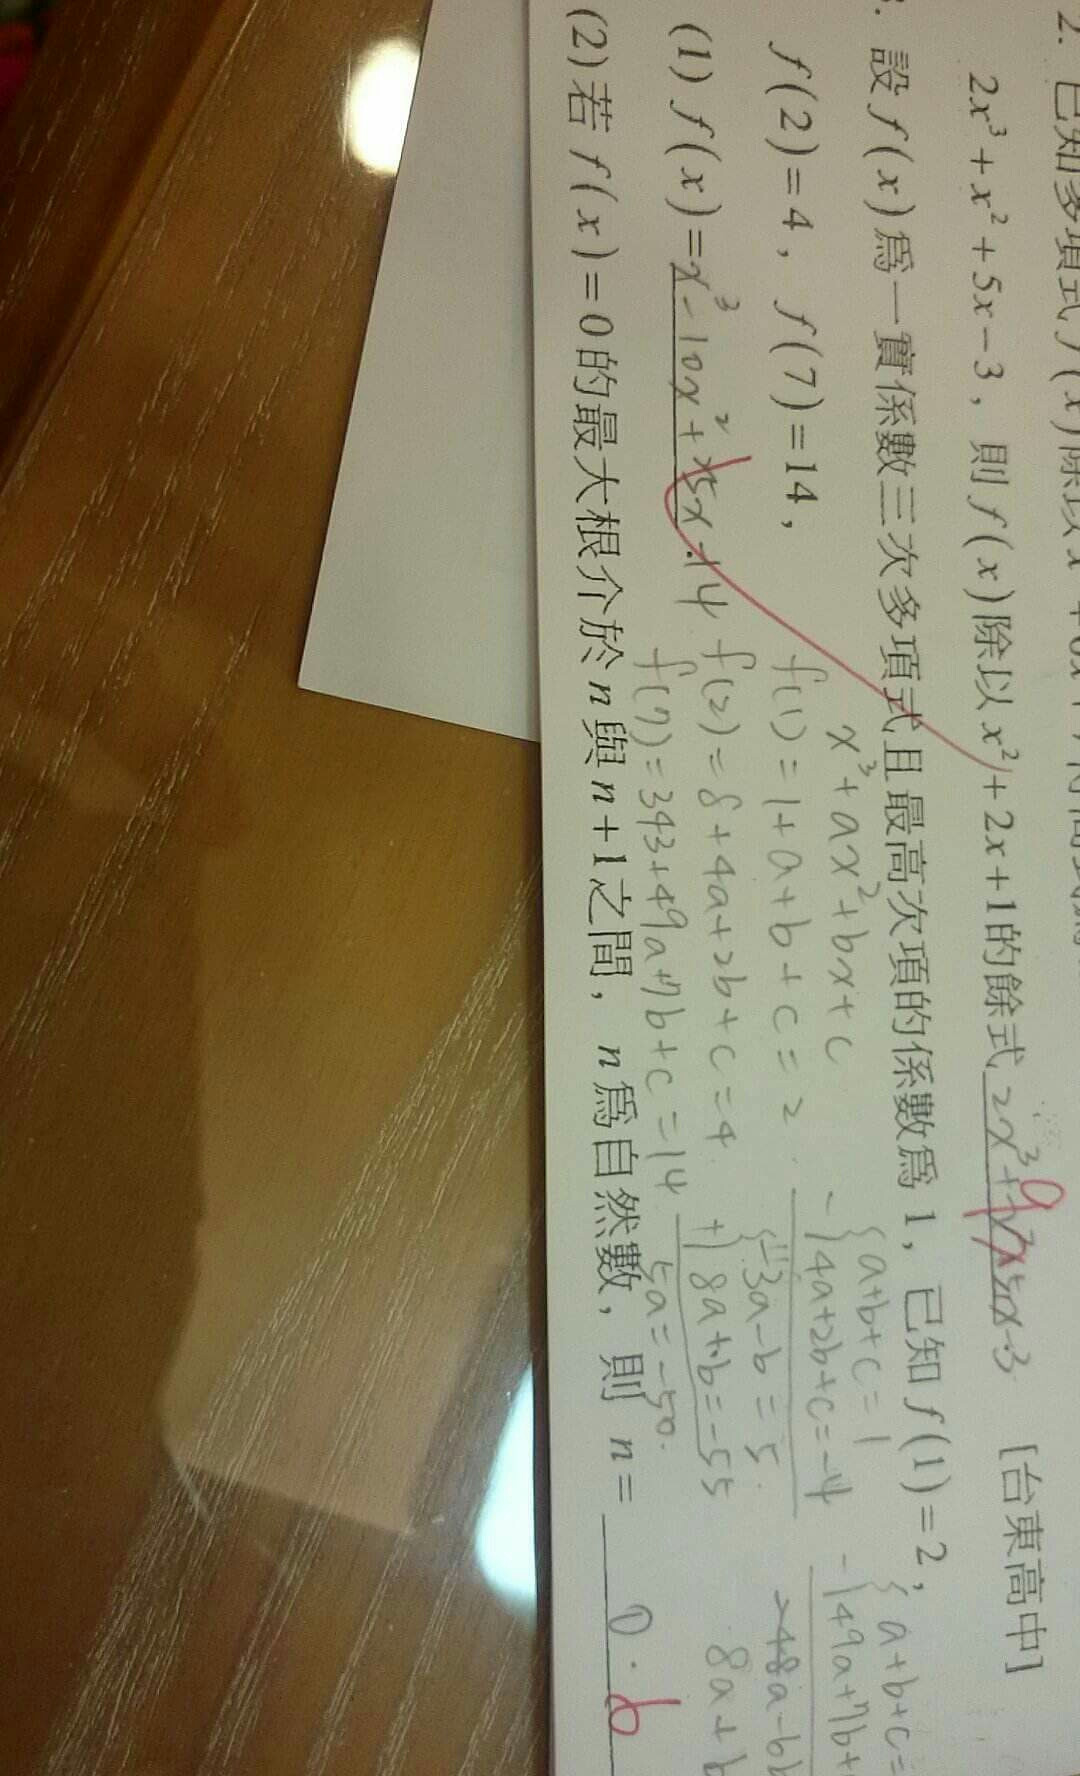 2. 已知多項式 f(x)除以 x
2x³+x²+5x-3，則 f(x)除以 x²+2x+1的餘式 2x³+x²+5x-3 [台東高中]
9
. 設 f(x)爲一實係數三次多項式且最高次項的係數爲 1，已知 f(1)=2，
f(2)=4，f(7)=14，
x³+ax²+bx+c
f(1)=1+a+b+c=2
f(2)=8+4a+2b+c=4
f(7)=343+49a+7b+c=14
a+b+c=1
-) 4a+2b+c=-4
-3a-b=5
+) 8a+b=-55
5a=-50.
a+b+c=
-) 49a+7b+
-48a-6b
8a+b
(1) f(x)=x³-10x²+25x-14
(2)若 f(x)=0的最大根介於 n 與 n+1之間，n 爲自然數，則 n= 0. 6